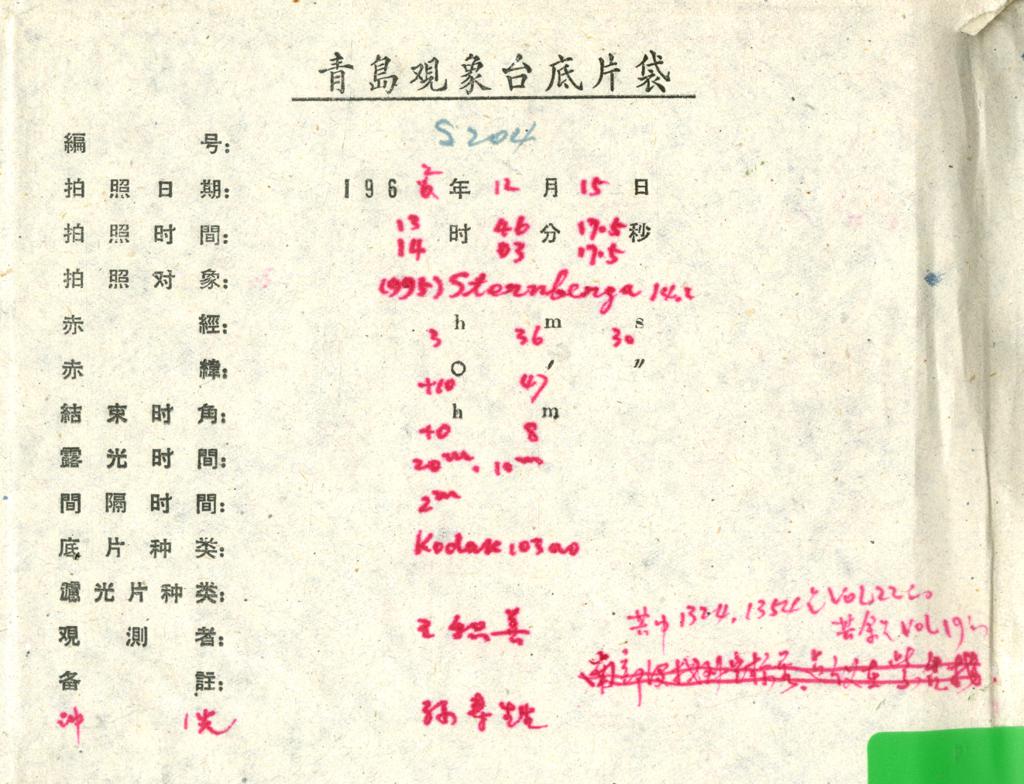 青島观象台底片袋
編号: S204
拍照日期: 196 年 12 月 15 日
拍照时間: 13 时 46 分 17.5 秒
14 03 17.5
拍照对象: (995) Sternberga 14.2
赤經: 3 h 36 m 30 s
赤緯: +10 ○ 47 ′ ″
結束时角: +0 h 8 m
露光时間: 20m. 10m
間隔时間: 2m
底片种类: Kodak 103 a0
濾光片种类:
观測者: 王 善
其中 1324, 1354 VOL22
VOL19
备註:
冲洗 孙寿